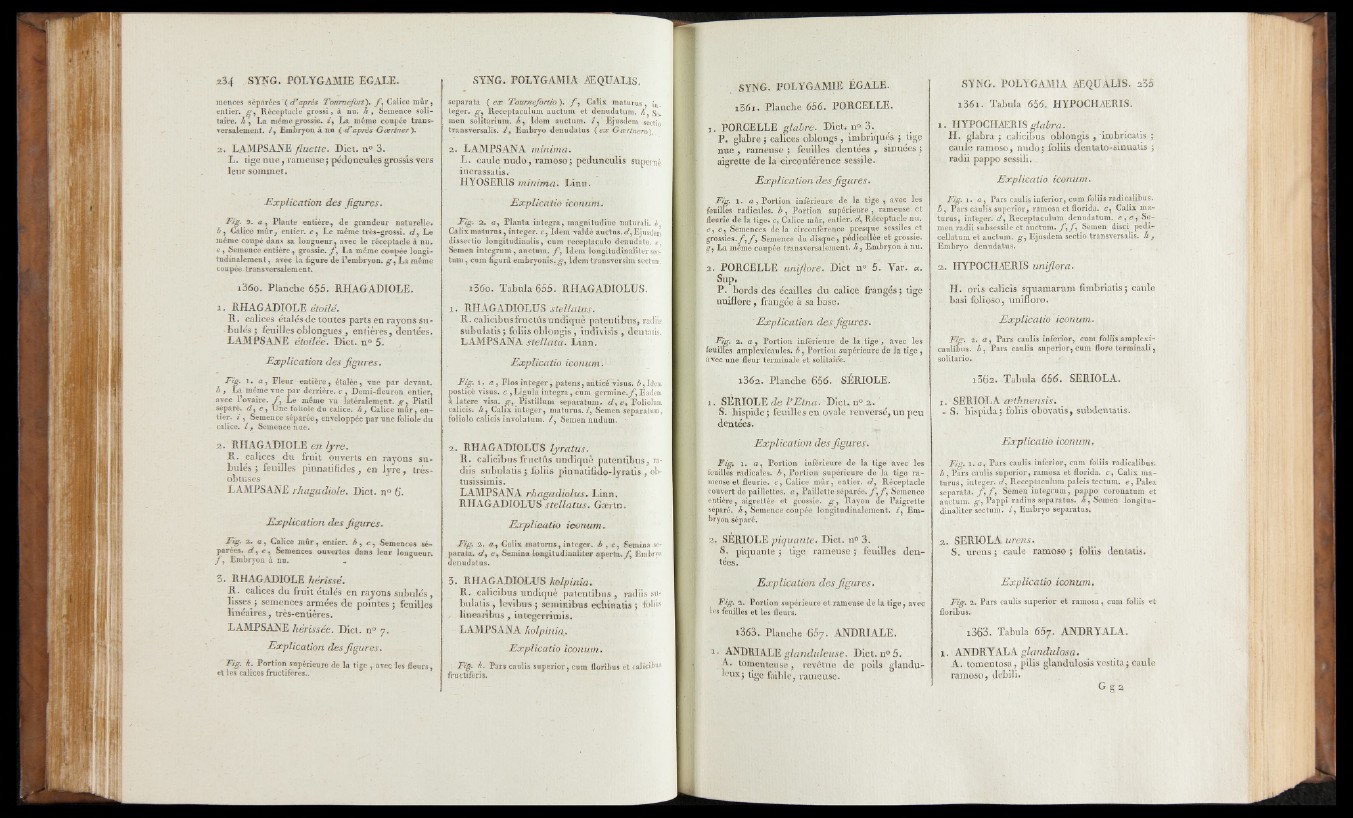 234 SYNG. POLYGAMIE ÉGALE.
mences séparées (d'après Tournefort). f, Calice mûr,
entier. g, Réceptacle grossi, à nu. h, Semence soli-
taire. k, La même grossie. i, La même coupée trans-
versalement. l, Embryon à nu (d'après Gærtner).
2. LAMPSANE fluette. Dict. nº 3.
L. tige nue, rameuse; pédoncules grossis vers
leur sommet.
Explication des figures.
Fig. 2. a, Plante entière, de grandeur naturelle.
b, Calice mûr, entier. c, Le même très-grossi. d, Le
même coupé dans sa longueur, avec le réceptacle à nu.
e, Semence entière, grossie. f, La même coupée longi-
tudinalement, avec la figure de l'embryon. g, La même
coupée transversalement.
1360. Planche 655. RHAGADIOLE.
1. RHAGADIOLE étoilé.
R. calices étalés de toutes parts en rayons su-
bulés; feuilles oblongues, entières, dentées.
LAMPSANE étoilée. Dict. nº 5.
Explication des figures.
Fig. 1. a, Fleur entière, étalée, vue par devant.
b, La même vue par derrière. c, Demi-fleuron entier,
avec l'ovaire. f, Le même vu latéralement. g, Pistil
séparé. d, e, Une foliole du calice. h, Calice mûr, en-
tier. i, Semence séparée, enveloppée par une foliole du
calice. l, Semence nue.
2. RHAGADIOLE en lyre.
R. calices du fruit ouverts en rayons su-
bulés; feuilles pinnatifides, en lyre, très-
obtuses
LAMPSANE rhagadiole. Dict. nº 6.
Explication des figures.
Fig. 2. a, Calice mûr, entier. b, c, Semences sé-
parées. d, e, Semences ouvertes dans leur longueur.
f, Embryon à nu.
3. RHAGADIOLE hérissé.
R. calices du fruit étalés en rayons subulés,
lisses; semences armées de pointes; feuilles
linéaires, très-entières.
LAMPSANE hérissée. Dict. nº 7.
Explication des figures.
Fig. k. Portion supérieure de la tige, avec les fleurs,
et les calices fructifères.
SYNG. POLYGAMIA ÆQUALIS.
separata (ex Tournefortio). f, Calix maturus, in-
teger. g, Receptaculum auctum et denudatum. h, Se-
men solitarium. k, Idem auctum. i, Ejusdem sectio
transversalis. l, Embryo denudatus (ex Gærtnero).
2. LAMPSANA minima.
L. caule nudo, ramoso; pedunculis supernè
incrassatis.
HYOSERIS minima. Linn.
Explicatio iconum.
Fig. 2. a, Planta integra, magnitudine naturali. b,
Calix maturus, integer. c, Idem valdè auctus. d, Ejusdem
dissectio longitudinalis, cum receptaculo denudato. e,
Semen integrum, auctum. f, Idem longitudinaliter sec-
tum, cum figurâ embryonis. g, Idem transversim sectum.
1360. Tabula 655. RHAGADIOLUS.
1. RHAGADIOLUS stellatus.
R. calicibus fructûs undiquè patentibus, radiis
subulatis; foliis oblongis, indivisis, dentatis.
LAMPSANA stellata. Linn.
Explicatio iconum.
Fig. 1. a, Flos integer, patens, anticè visus. b, Idem
posticè visus. c, Ligula integra, cum germine. f, Eadem
à latere visa. g, Pistillum separatum. d, e, Foliolum
calicis. h, Calix integer, maturus. i, Semen separatum,
foliolo calicis involutum. l, Semen nudum.
2. RHAGADIOLUS lyratus.
R. calicibus fructûs undiquè patentibus, ra-
diis subulatis; foliis pinnatifido-lyratis, ob-
tusissimis.
LAMPSANA rhagadiolus. Linn.
RHAGADIOLUS stellatus. Gærtn.
Explicatio iconum.
Fig. 2. a, Calix maturus, integer. b, c, Semina se-
parata. d, e, Semina longitudinaliter aperta. f, Embryo
denudatus.
3. RHAGADIOLUS kolpinia.
R. calicibus undiquè patentibus, radiis su-
bulatis, levibus; seminibus echinatis; foliis
linearibus, integerrimis.
LAMPSANA kolpinia.
Explicatio iconum.
Fig. k. Pars caulis superior, cum floribus et calicibus
fructiferis.
SYNG. POLYGAMIE ÉGALE.
1361. Planche 656. PORCELLE.
1. PORCELLE glabre. Dict. nº 3.
P. glabre; calices oblongs, imbriqués; tige
nue, rameuse; feuilles dentées, sinuées;
aigrette de la circonférence sessile.
Explication des figures.
Fig. 1. a, Portion inférieure de la tige, avec les
feuilles radicales. b, Portion supérieure, rameuse et
fleurie de la tige. c, Calice mûr, entier. d, Réceptacle nu.
e, e, Semences de la circonférence presque sessiles et
grossies. f, f, Semence du disque, pédicellée et grossie.
g, La même coupée transversalement. h, Embryon à nu.
2. PORCELLE uniflore. Dict nº 5. Var. α.
Sup.
P. bords des écailles du calice frangés; tige
uniflore, frangée à sa base.
Explication des figures.
Fig. 2. a, Portion inférieure de la tige, avec les
feuilles amplexicaules. b, Portion supérieure de la tige,
avec une fleur terminale et solitaire.
1362. Planche 656. SÉRIOLE.
1. SÉRIOLE de l'Etna. Dict. nº 2.
S. hispide; feuilles en ovale renversé, un peu
dentées.
Explication des figures.
Fig. 1. a, Portion inférieure de la tige avec les
feuilles radicales. b, Portion supérieure de la tige ra-
meuse et fleurie. c, Calice mûr, entier. d, Réceptacle
couvert de paillettes. e, Paillette séparée. f, f, Semence
entière, aigrettée et grossie. g, Rayon de l'aigrette
séparé. h, Semence coupée longitudinalement. i, Em-
bryon séparé.
2. SÉRIOLE piquante. Dict. nº 3.
S. piquante; tige rameuse; feuilles den-
tées.
Explication des figures.
Fig. 2. Portion supérieure et rameuse de la tige, avec
les feuilles et les fleurs.
1363. Planche 657. ANDRIALE.
1. ANDRIALE glanduleuse. Dict. nº 5.
A. tomenteuse, revêtue de poils glandu-
leux; tige foible, rameuse.
SYNG. POLYGAMIA ÆQUALIS. 235
1361. Tabula 656. HYPOCHÆRIS.
1. HYPOCHÆRIS glabra.
H. glabra; calicibus oblongis, imbricatis;
caule ramoso, nudo; foliis dentato-sinuatis;
radii pappo sessili.
Explicatio iconum.
Fig. 1. a, Pars caulis inferior, cum foliis radicalibus.
b, Pars caulis superior, ramosa et florida. c, Calix ma-
turus, integer. d, Receptaculum denudatum. e, e, Se-
men radii subsessile et auctum. f, f, Semen disci pedi-
cellatum et auctum. g, Ejusdem sectio transversalis. h,
Embryo denudatus.
2. HYPOCHÆRIS uniflora.
H. oris calicis squamarum fimbriatis; caule
basi folioso, unifloro.
Explicatio iconum.
Fig. 2. a, Pars caulis inferior, cum foliis amplexi-
caulibus. b, Pars caulis superior, cum flore terminali,
solitario.
1362. Tabula 656. SERIOLA.
1. SERIOLA æthnensis.
S. hispida; foliis obovatis, subdentatis.
Explicatio iconum.
Fig. 1. a, Pars caulis inferior, cum foliis radicalibus.
b, Pars caulis superior, ramosa et florida. c, Calix ma-
turus, integer. d, Receptaculum paleis tectum. e, Palea
separata. f, f, Semen integrum, pappo coronatum et
auctum. g, Pappi radius separatus. h, Semen longitu-
dinaliter sectum. i, Embryo separatus.
2. SERIOLA urens.
S. urens; caule ramoso; foliis dentatis.
Explicatio iconum.
Fig. 2. Pars caulis superior et ramosa, cum foliis et
floribus.
1363. Tabula 657. ANDRYALA.
1. ANDRYALA glandulosa.
A. tomentosa, pilis glandulosis vestita; caule
ramoso, debili.
G g 2